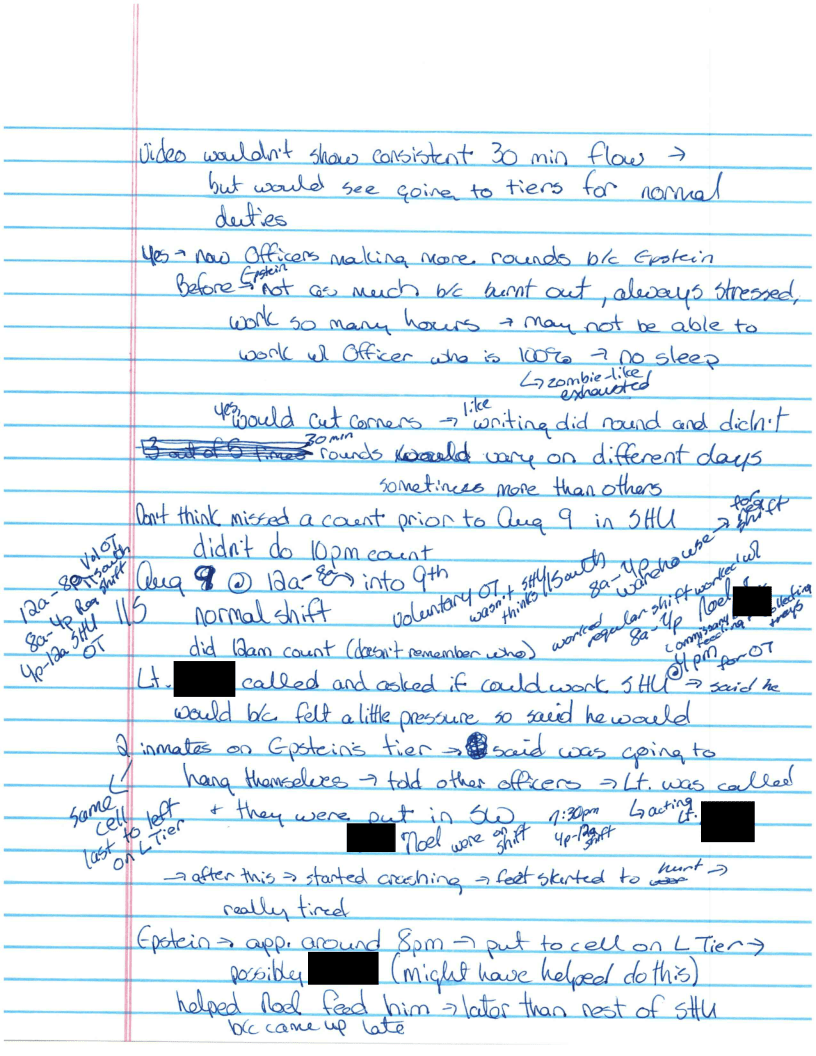 Video wouldn't show consistent 30 min flow →
but would see going to tiers for normal
duties
Yes → now Officers making more rounds b/c Epstein
Before Epstein → not as much b/c burnt out, always stressed,
work so many hours → may not be able to
work w/ Officer who is 100% → no sleep
↳ zombie-like
exhausted
yes, would cut corners → like writing did round and didn't
3 out of 5 times 30 min rounds would vary on different days
sometimes more than others
Don't think missed a count prior to Aug 9 in SHU
didn't do 10pm count
12a-8a Vol OT
11 South
8a-4p Reg shift
4p-12a SHU
OT
Aug 9 @ 12a-8a → into 9th
11S normal shift
voluntary OT, wasn't SHU
thinks 11 South
8a-4p warehouse → for next shift
did 12am count (doesn't remember who)
worked regular shift worked w/
8a-4p Noel &
commissary
feeding collecting
trays
@ 4pm for OT
Lt. called and asked if could work SHU → said he
would b/c felt a little pressure so said he would
2 inmates on Epstein's tier → said was going to
hang themselves → told other officers → Lt. was called
+ they were put in SW 7:30pm ↳ acting Lt.
same cell
last to left
on L Tier
Noel were on shift 4p-12a shift
→ after this → started crashing → feet started to hurt →
really tired
Epstein → app. around 8pm → put to cell on L Tier →
possibly (might have helped do this)
helped Noel feed him → later than rest of SHU
b/c came up late